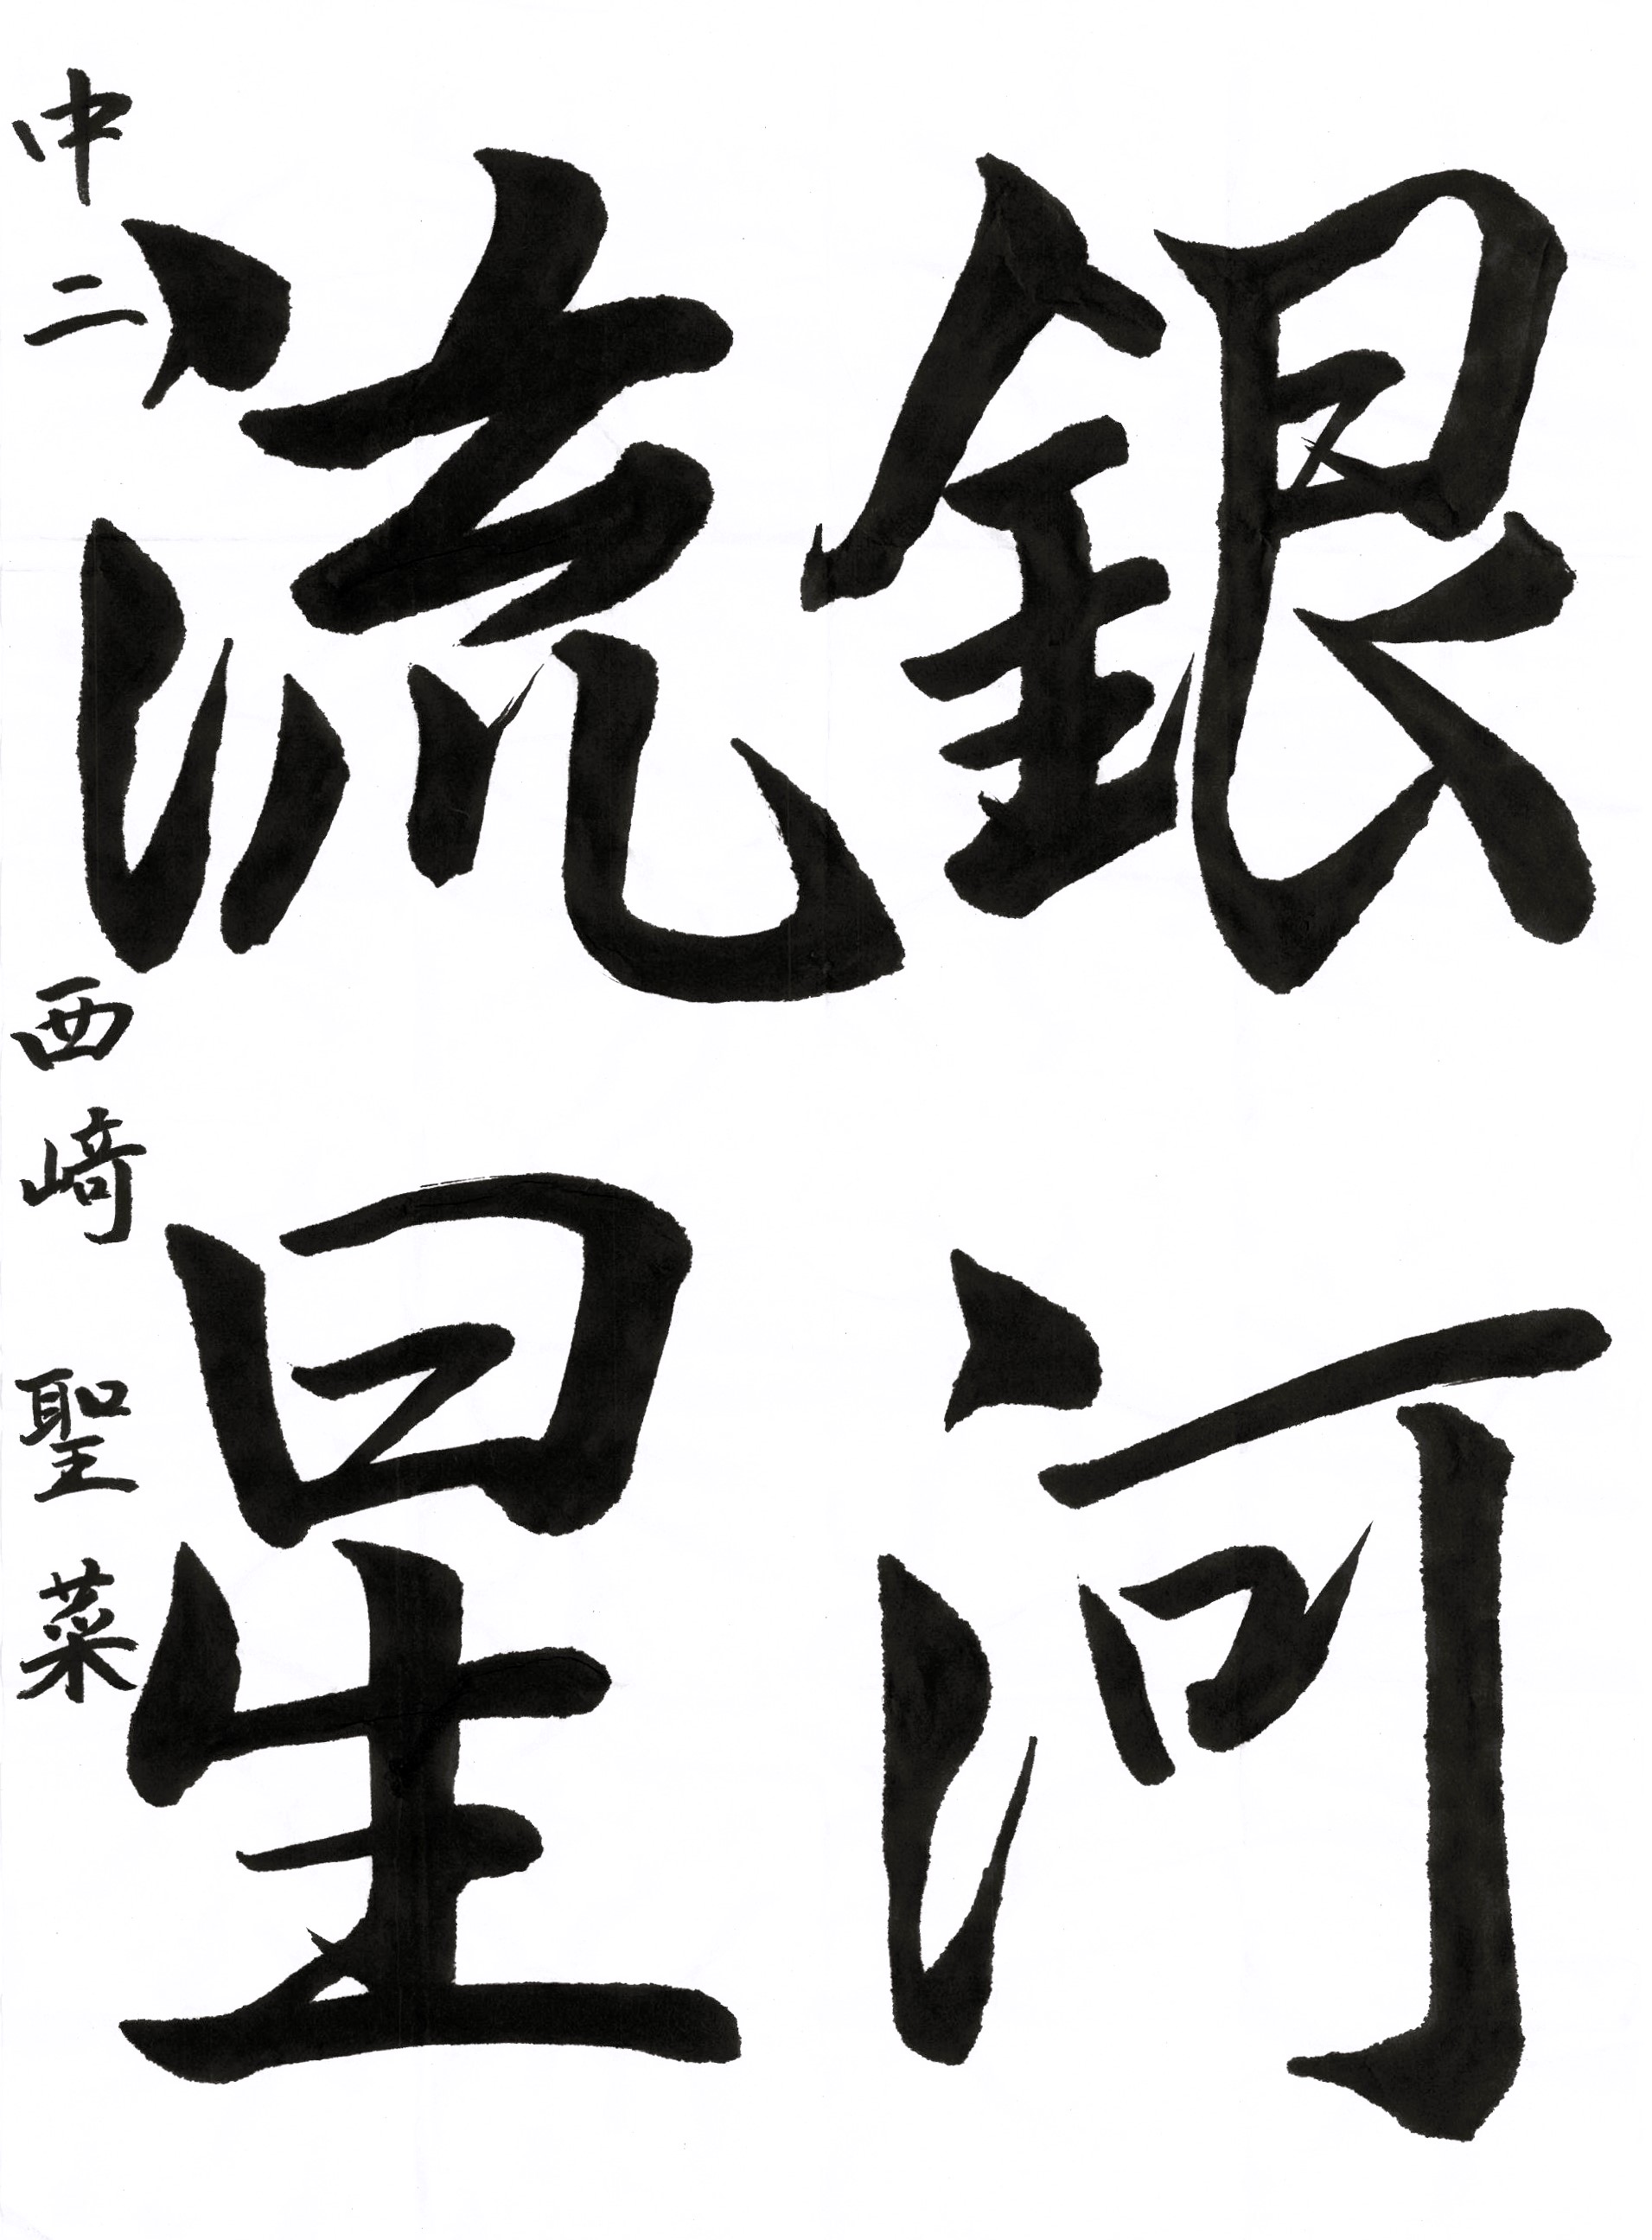 銀河
流星
中二 西﨑聖菜